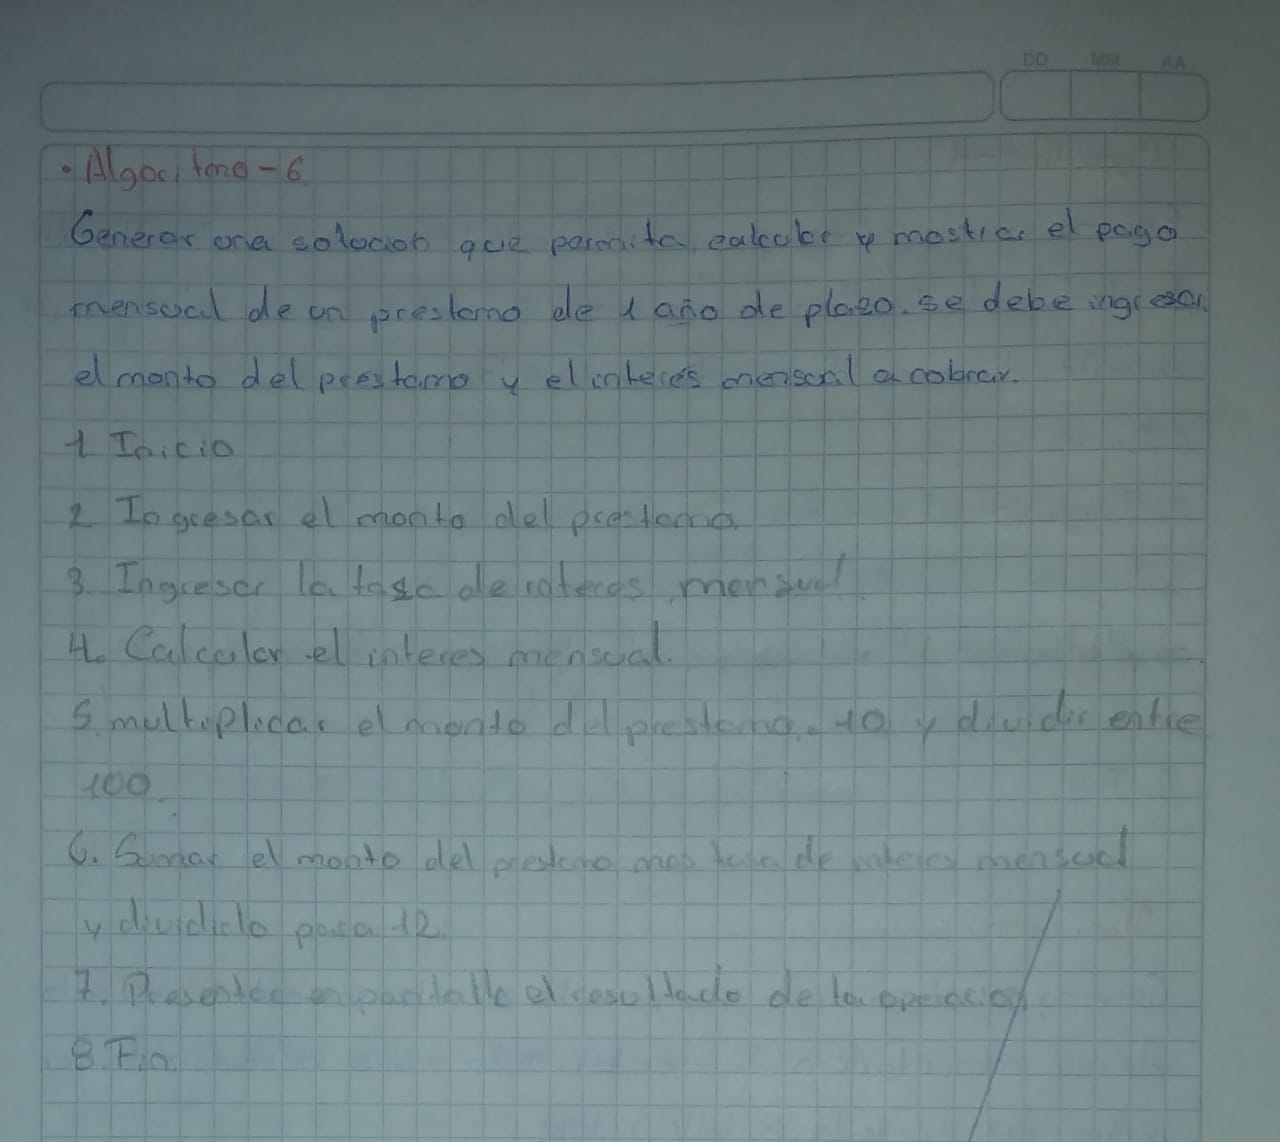 DD MM AA
• Algoritmo - 6
Generar una solucion que permita calcular y mostrar el pago
mensual de un prestamo de 1 año de plazo. se debe ingresar
el monto del préstamo y el interés mensual a cobrar.
1. Inicio
2. Ingresar el monto del prestamo
3. Ingresar la tasa de interes mensual
4. Calcular el interes mensual.
5. multiplicar el monto del prestamo. 10 y dividir entre
100.
6. Sumar el monto del prestamo mas tasa de interes mensual
y dividido para 12.
7. Presentar en pantalla el resultado de la operacion
8. Fin.